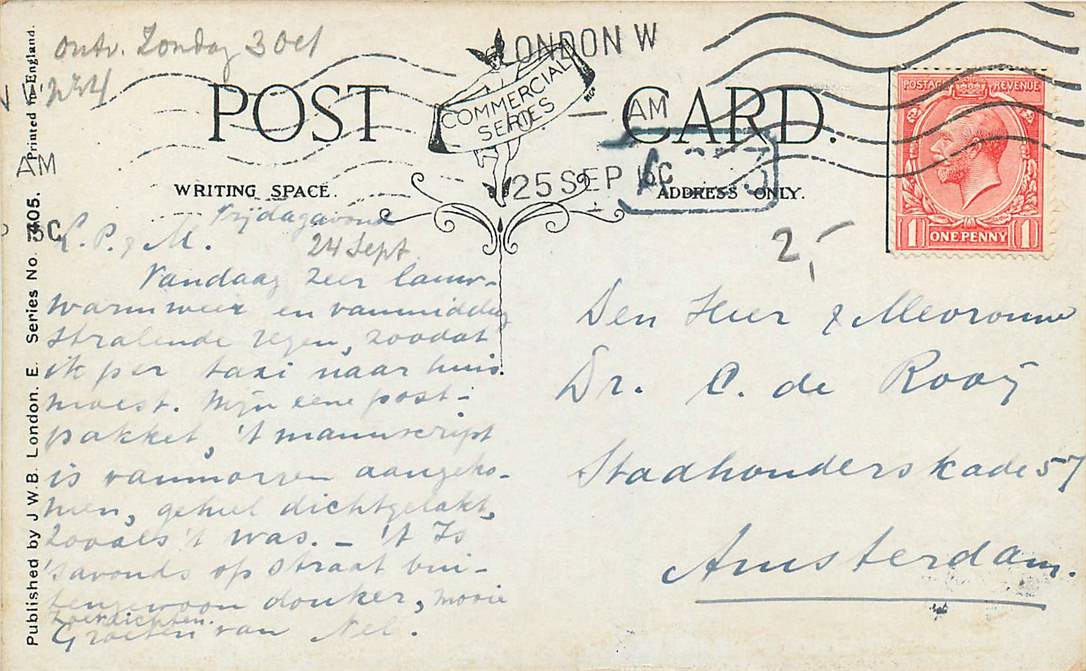 ontv. Zondag 3 Oct
LONDON W
AM
25 SEP 15
POST CARD.
COMMERCIAL
SERIES
WRITING SPACE.
ADDRESS ONLY.
POSTAGE REVENUE
1 ONE PENNY 1
2,-
Vrijdagavond
24 Sept.
L. P. & M.
Vandaag zeer lauw-
warm weer en vanmiddag
stralende regen, zoodat
ik per taxi naar huis
moest. Mijn eene post-
pakket, 't manuscript
is vanmorgen aangeko-
men, geheel dichtgelakt,
zooals 't was. - 't Is
's avonds op straat bui-
tengewoon donker, mooie
zoeklichten.
Groeten van Nel.
Den Heer & Mevrouw
Dr. C. de Rooy
Stadhouderskade 57
Amsterdam.
Published by J.W.B. London. E. Series No. 305. Printed in England.
AM